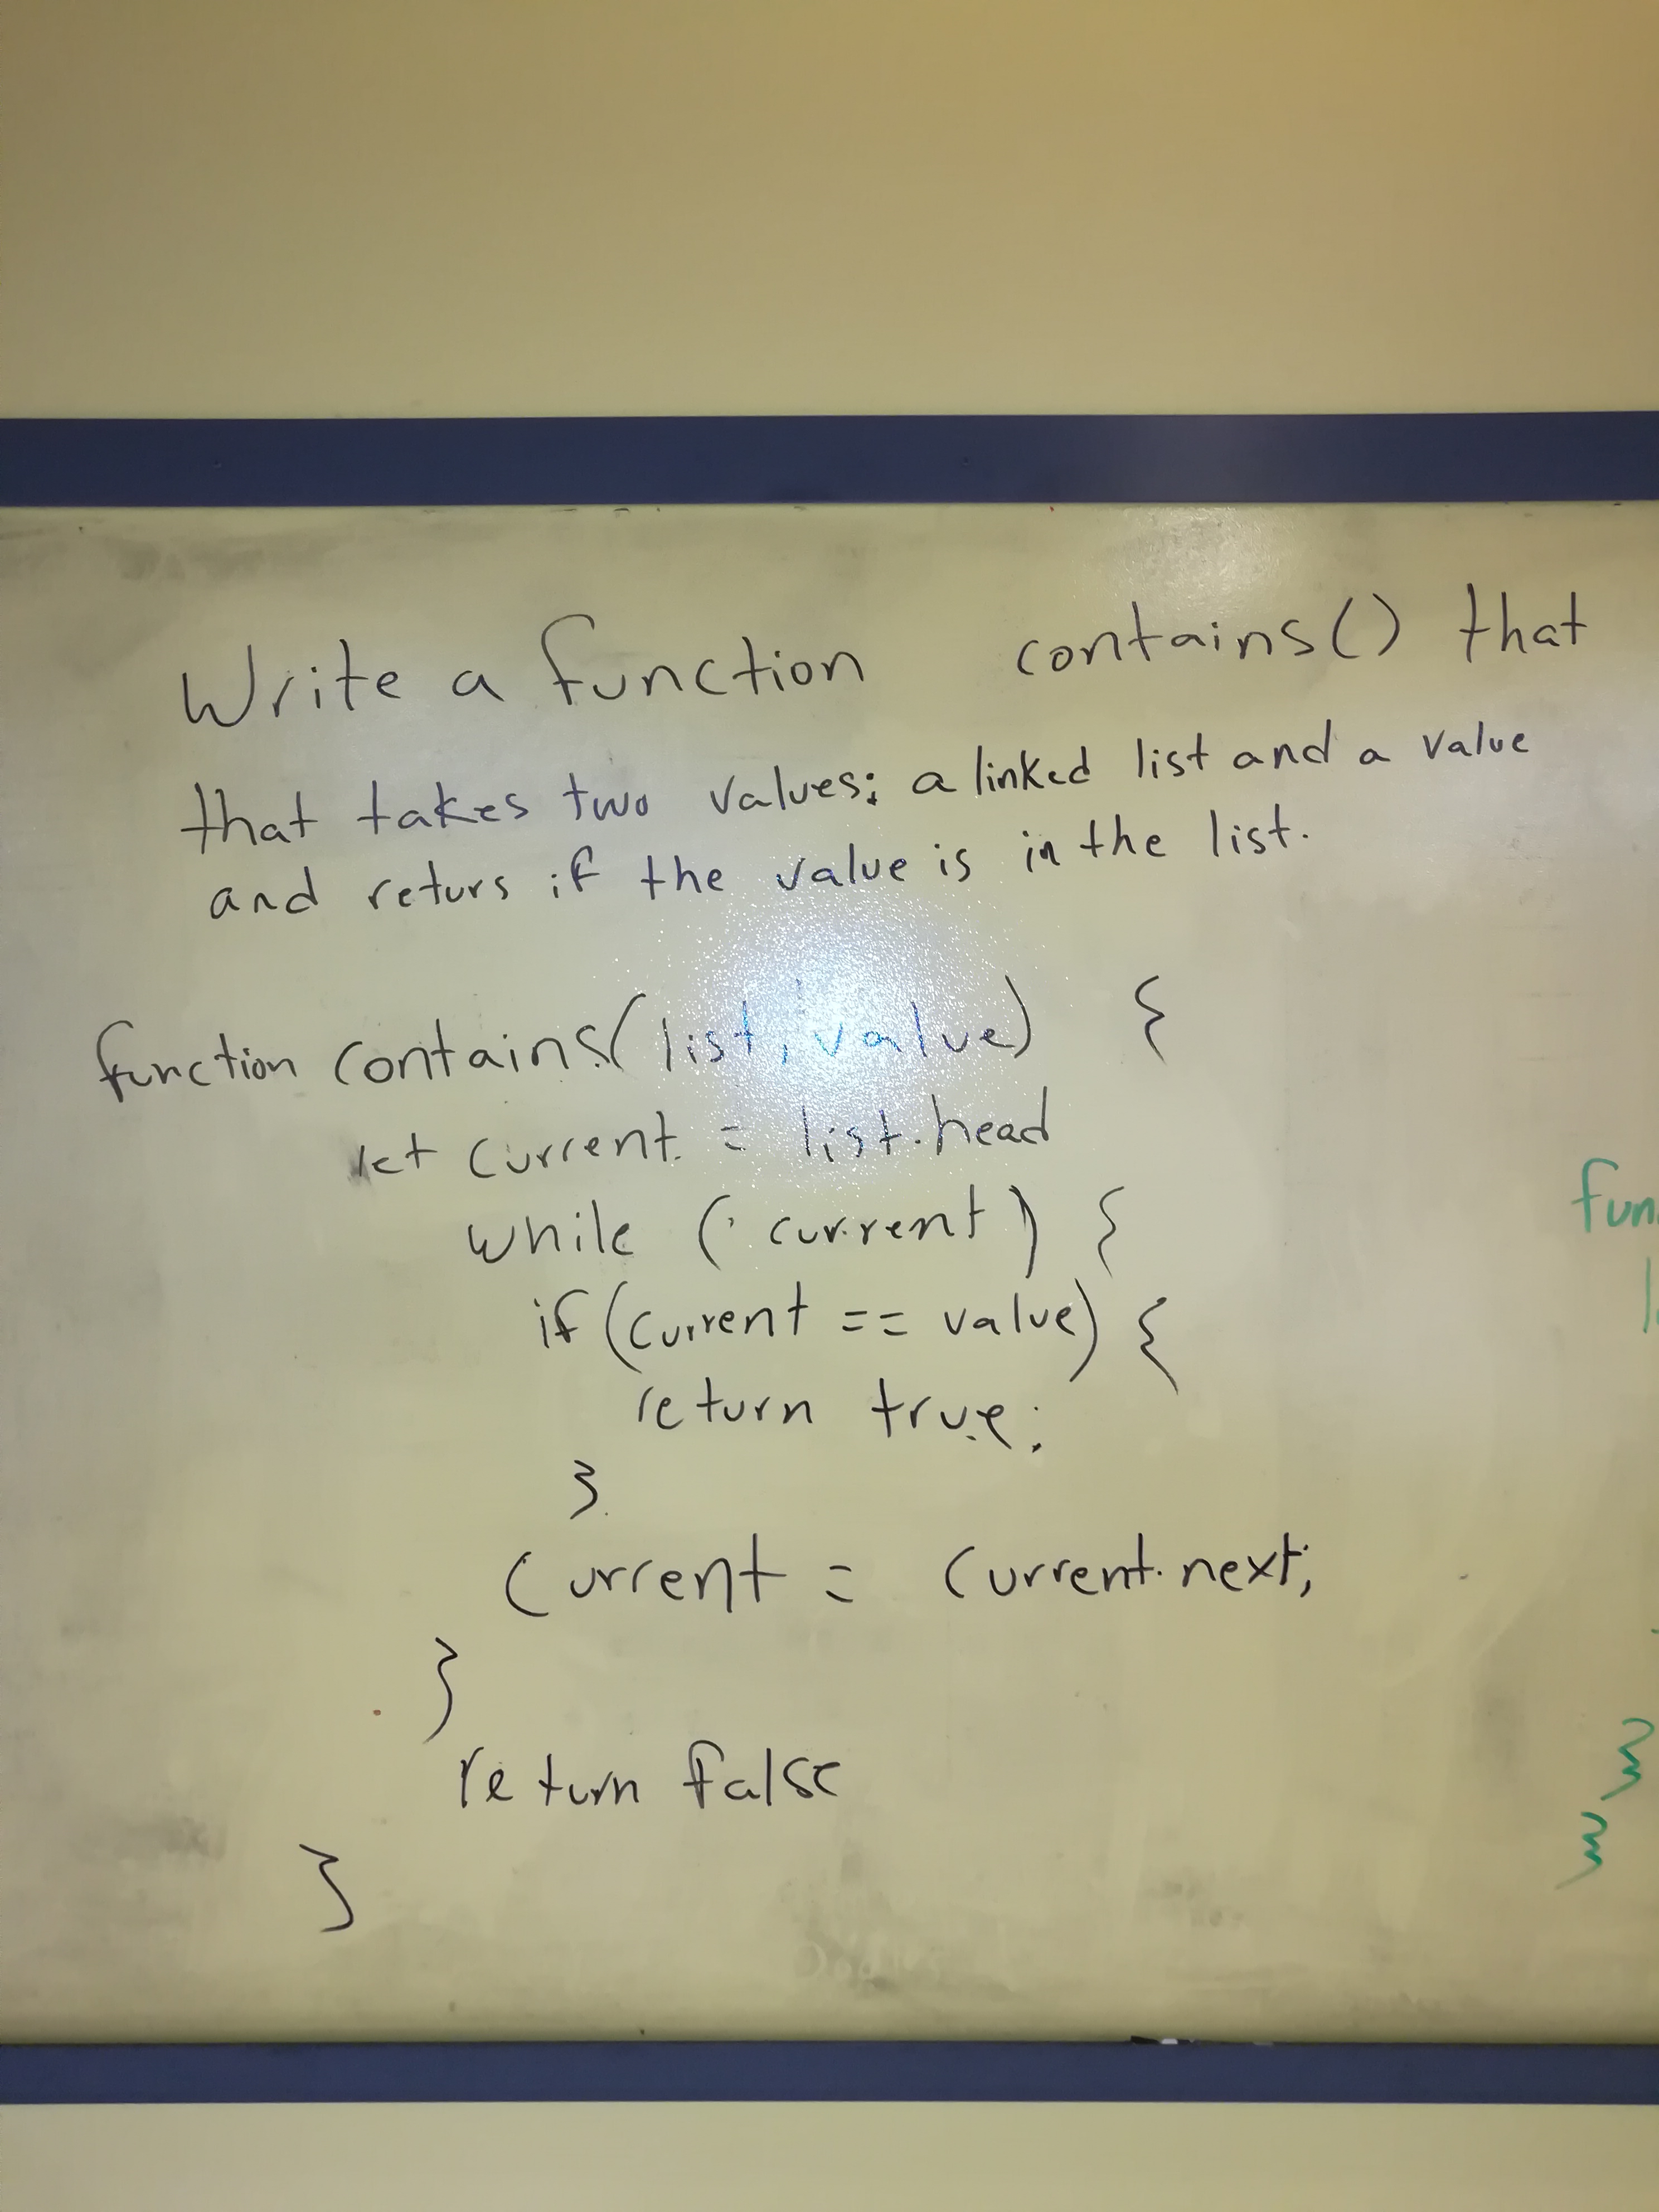 Write a function contains() that
that takes two values: a linked list and a value
and returs if the value is in the list.
function contains(list, value) {
let current = list.head
while (current) {
if (current == value) {
return true;
}
current = current.next;
}
return false
}
fun
l
}
}